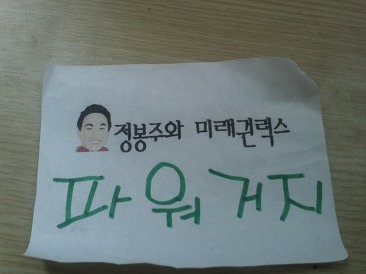 정봉주와 미래권력스
파워거지